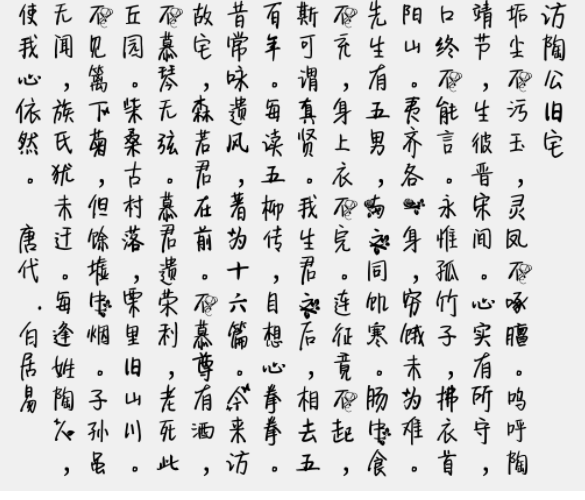 访陶公旧宅
垢尘不污玉，灵凤不啄膻。呜呼陶
靖节，生彼晋宋间。心实有所守，
口终不能言。永惟孤竹子，拂衣首
阳山。夷齐各一身，穷饿未为难。
先生有五男，与之同饥寒。肠中食
不充，身上衣不完。连征竟不起，
斯可谓真贤。我生君之后，相去五
百年。每读五柳传，目想心拳拳。
昔常咏遗风，著为十六篇。今来访
故宅，森若君在前。不慕尊有酒，
不慕琴无弦。慕君遗荣利，老死此
丘园。柴桑古村落，栗里旧山川。
不见篱下菊，但馀墟中烟。子孙虽
无闻，族氏犹未迁。每逢姓陶人，
使我心依然。 唐代.白居易